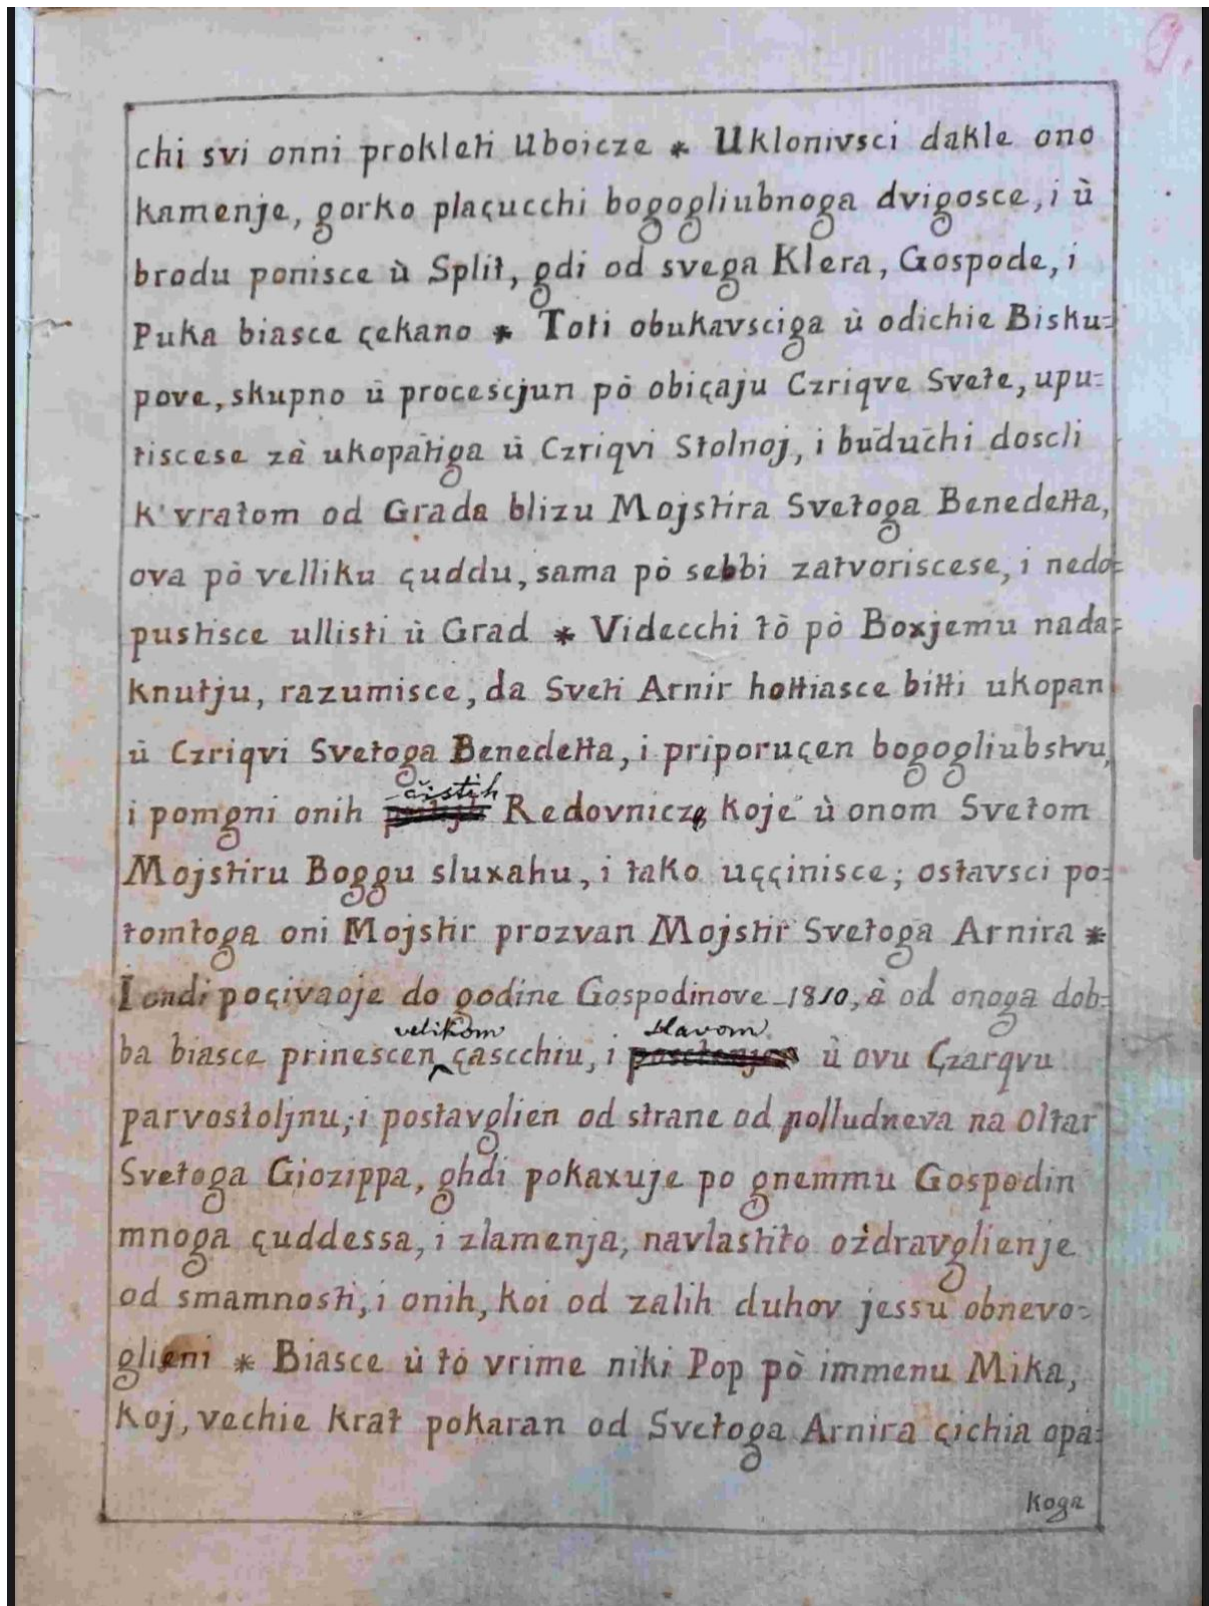 9.
chi svi onni prokleti Uboicze * Uklonivsci dakle ono
kamenje, gorko plaçucchi bogogliubnoga dvigosce, i ù
brodu ponisce ù Split, gdi od svega Klera, Gospode, i
Puka biasce çekano * Toti obukavsciga ù odichie Bisku=
pove, skupno ù procescjun pò obiçaju Czriqve Svete, upu=
tiscese zà ukopatiga ù Czriqvi Stolnoj, i buduchi doscli
k' vratom od Grada blizu Mojstira Svetoga Benedetta,
ova pò velliku çuddu, sama pò sebbi zatvoriscese, i nedo=
pustisce ullisti ù Grad * Videcchi tò pò Boxjemu nada=
knutju, razumisce, da Sveti Arnir hottiasce bitti ukopan
ù Czriqvi Svetoga Benedetta, i priporuçen bogogliubstvu,
čistih
i pomgni onih Redovnicze koje ù onom Svetom
Mojstiru Boggu sluxahu, i tako uççinisce; ostavsci po=
tomtoga oni Mojstir prozvan Mojstir Svetoga Arnira *
I ondi poçivaoje do godine Gospodinove 1810, à od onoga dob=
velikom slavom
ba biasce prinescen çascchiu, i ù ovu Çzarqvu
parvostoljnu, i postavglien od strane od polludneva na Oltar
Svetoga Giozippa, ghdi pokaxuje po gnemmu Gospodin
mnoga çuddessa, i zlamenja, navlastito ozdravglienje
od smamnosti, i onih, koi od zalih duhov jessu obnevo=
glieni * Biasce ù tò vrime niki Pop pò immenu Mika,
koj, vechie krat pokaran od Svetoga Arnira çichia opa=
koga